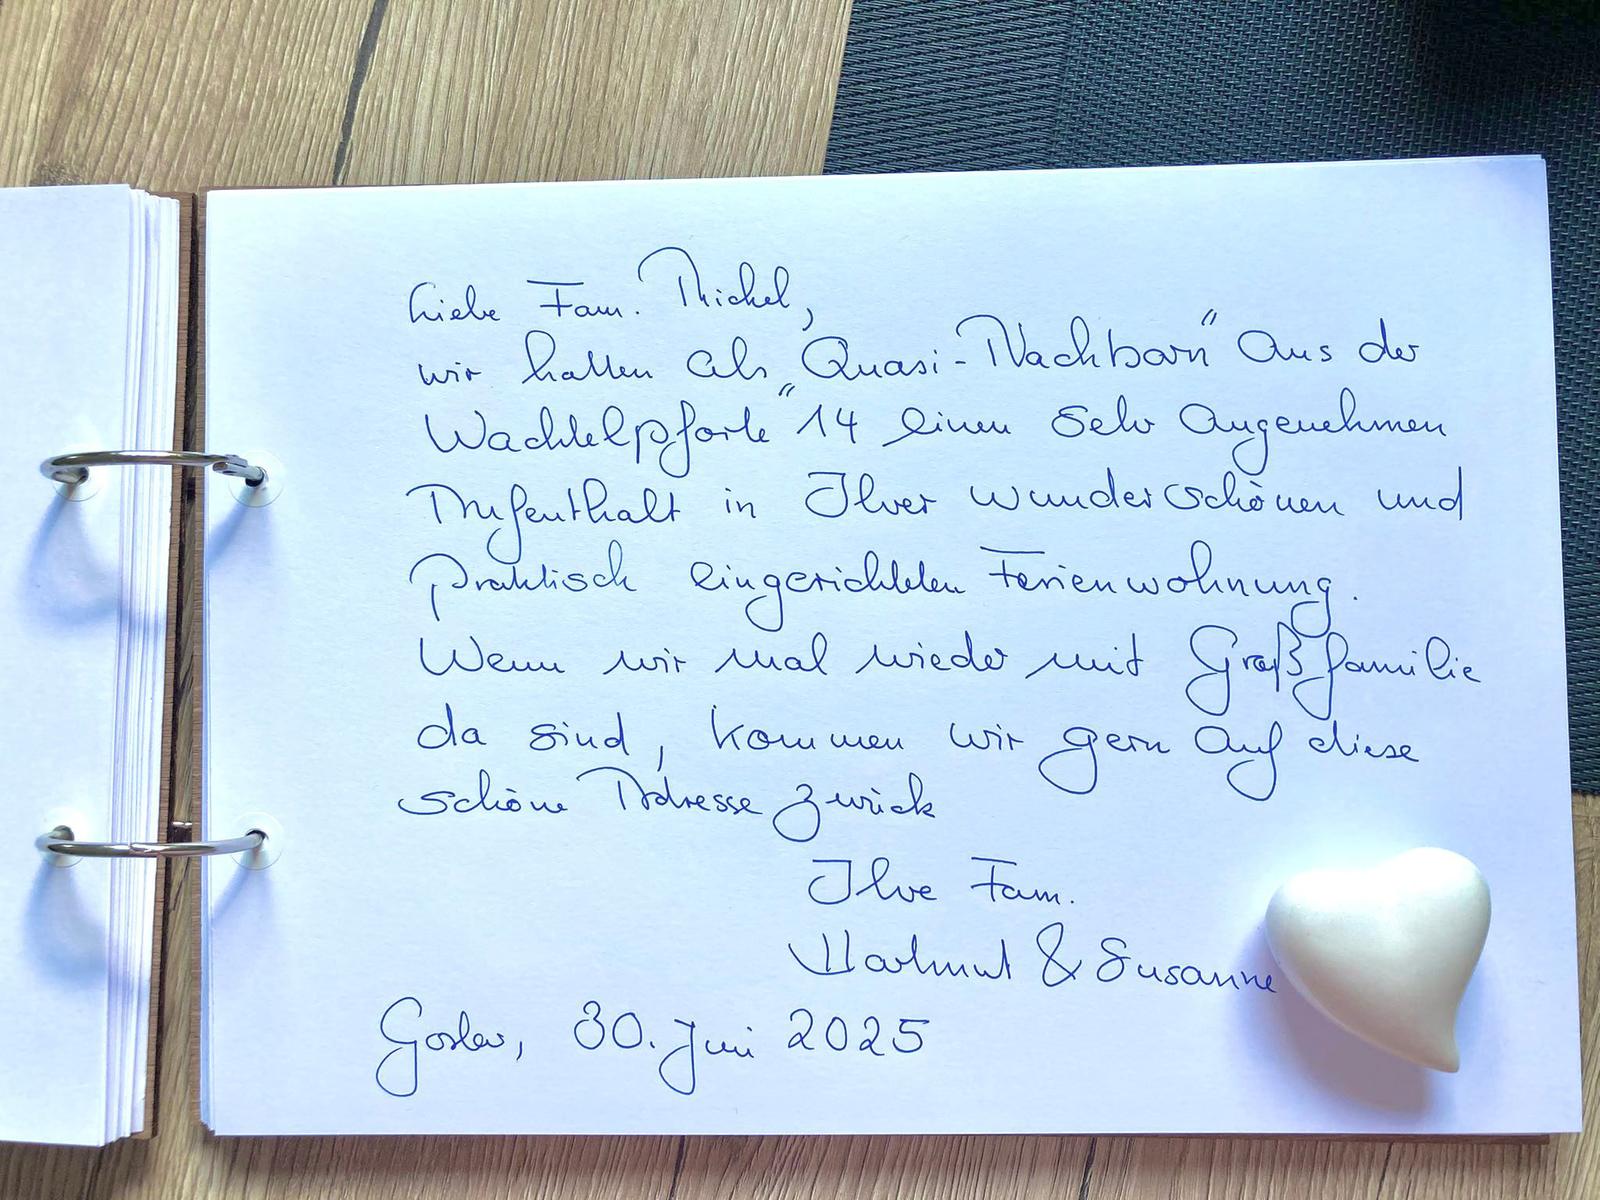 Liebe Fam. Michel,
wir hatten als „Quasi-Nachbarn“ aus der
Wachtelpforte 14 einen sehr angenehmen
Aufenthalt in Ihrer wunderschönen und
praktisch eingerichteten Ferienwohnung.
Wenn wir mal wieder mit Großfamilie
da sind, kommen wir gern auf diese
schöne Adresse zurück
Ihre Fam.
Hartmut & Susanne
Goslar, 30. Juni 2025